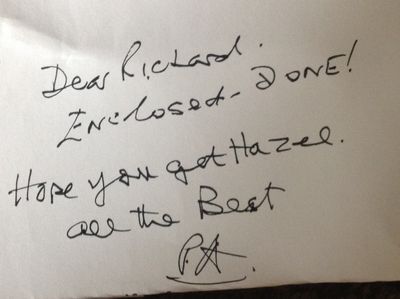 Dear Richard.
Enclosed - DONE!
Hope you get Hazel.
all the Best
P.A.